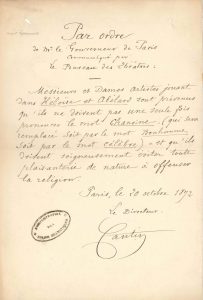 Par ordre
de Mr le Gouverneur de Paris
Communiqué par
le Bureau des Théâtres:
Messieurs et Dames Artistes jouant
dans Héloïse et Abélard sont prévenus
qu'ils ne doivent pas une seule fois
prononcer le mot Chanoine (qui sera
remplacé soit par le mot Bonhomme,
soit par le mot célèbre) - et qu'ils
doivent soigneusement éviter toute
plaisanterie de nature à offenser
la religion.
Paris, le 20 octobre 1872
Le Directeur
Cantin